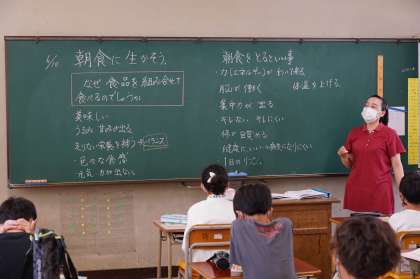 5/10 朝食に生かそう。
なぜ食品を組み合せて
食べるのでしょうか。
美味しい
うまみ 甘みが出る
足りない栄養を補う バランス
色々な食感
元気、力が出ない。
朝食をとるといい事
・力(エネルギー)が わいて来る
脳が働く 体温を上げる
集中力が出る
体が目覚める
1日のリズム